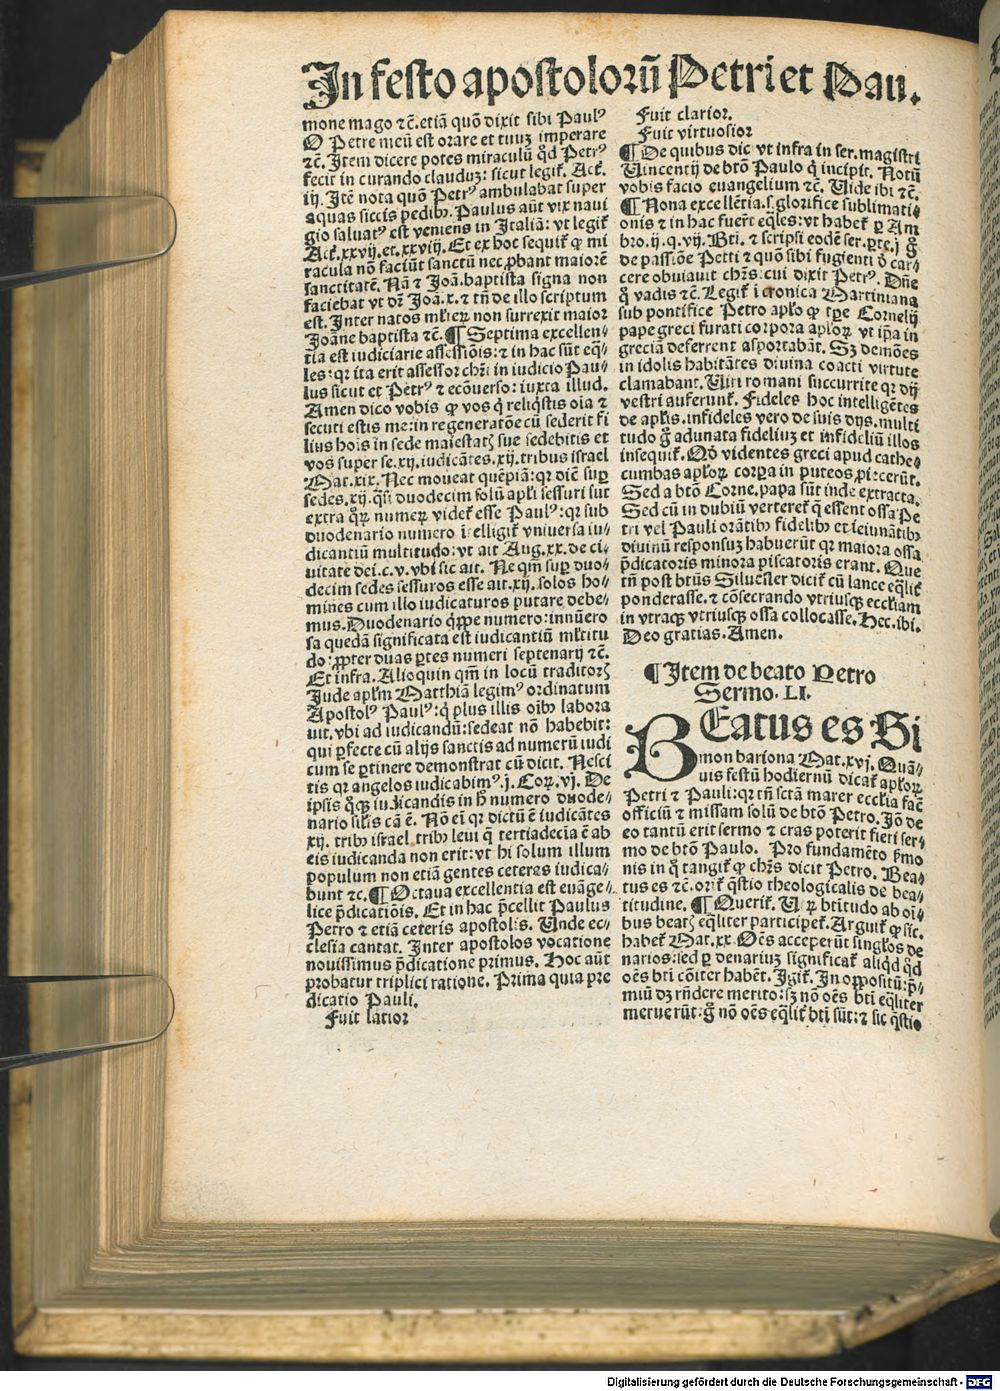 In festo apostolorū Petri et Pau.
mone mago ⁊c̄. etiā quō dixit sibi Paulꝰ
O Petre meū est orare et tuuꝫ imperare
⁊c̄. Item dicere potes miraculū qd̄ Petrꝰ
fecit in curando clauduꝫ: sicut legit̄. Act̄.
iij. Itē nota quō Petrꝰ ambulabat super
aquas siccis pedibꝰ. Paulus aūt vix naui
gio saluatꝰ est veniens in Italiā: vt legit̄
Act̄. xxvij. et. xxviij. Et ex hoc sequit̄ ꝙ mi
racula nō faciūt sanctū nec ꝓbant maiorē
sanctitatē. Nā ⁊ Joā. baptista signa non
faciebat vt dr̄ Joā. x. ⁊ tn̄ de illo scriptum
est. Inter natos mulieꝝ non surrexit maior
Joāne baptista ⁊c̄. ¶ Septima excellen⸗
tia est iudiciarie assessiōis: ⁊ in hac sūt eq̄⸗
les: qꝛ ita erit assessor chr̄i in iudicio Pau⸗
lus sicut et Petrꝰ ⁊ ecōuerso: iuxta illud.
Amen dico vobis ꝙ vos q̄ reliq̄stis oīa ⁊
secuti estis me: in regeneratōe cū sederit fi
lius hoīs in sede maiestatꝭ sue sedebitis et
vos super se. xij. iudicātes. xij. tribus israel
Mat. xix. Nec moueat quēpiā: qꝛ dīc̄ suꝑ
sedes. xij. q̄si duodecim solū apl̄i sessuri sūt
extra q̄ꝝ numeꝝ videt̄ esse Paulꝰ: qꝛ sub
duodenario numero ītelligit̄ vniuersa iu⸗
dicantiū multitudo: vt ait Aug. xx. de ci⸗
uitate dei. c. v. vbi sic ait. Ne qm̄ suꝑ duo⸗
decim sedes sessuros esse ait. xij. solos ho⸗
mines cum illo iudicaturos putare debe⸗
mus. Duodenario q̄ppe numero: innūero
sa quedā significata est iudicantiū ml̄titu
do: ꝓpter duas ꝑtes numeri septenarij ⁊c̄.
Et infra. Alioquin qm̄ in locū traditorꝭ
Jude apl̄m Matthiā legimꝰ ordinatum
Apostolꝰ Paulꝰ: q̄ plus illis oībꝰ labora
uit. vbi ad iudicandū: sedeat nō habebit:
qui ꝑfecte cū alijs sanctis ad numerū iudi
cum se ꝑtinere demonstrat cū dicit. Nesci
tis qꝛ angelos iudicabimꝰ. j. Coꝝ. vj. De
ipsis q̄ꝙ iudicandis in h̄ numero duode⸗
nario sil̄is cā ē. Nō eī qꝛ dictū ē iudicātes
xij. tribꝰ israel tribꝰ leui q̄ tertiadecīa ē ab
eis iudicanda non erit: vt hi solum illum
populum non etiā gentes ceteras iudica⸗
bunt ⁊c. ¶ Octaua excellentia est euāge⸗
lice p̄dicatiōis. Et in hac p̄cellit Paulus
Petro ⁊ etiā ceteris apostolis. Unde ec⸗
clesia cantat. Inter apostolos vocatione
nouissimus p̄dicatione primus. Hoc aūt
probatur triplici ratione. Prima quia pre
dicatio Pauli.
Fuit latior
Fuit clarior.
Fuit virtuosior
¶ De quibus dic vt infra in ser. magistri
Vincentij de btō Paulo q̄ incipit. Notū
vobis facio euangelium ⁊c̄. Uide ibi ⁊c̄.
¶ Nona excellētia. s. glorifice sublimati⸗
onis ⁊ in hac fuerūt eq̄les: vt habet̄ ꝑ Am
bro. ij. q. vij. Bti. ⁊ scripsi eodē ser. ꝑte. j. g̊
de passiōe Petri ⁊ quō sibi fugienti d̄ car⸗
cere obuiauit chr̄s: cui dixit Petrꝰ. Dn̄e
q̊ vadis ⁊c̄. Legit̄ ī cronica Martiniana
sub pontifice Petro apl̄o ꝙ tpe Cornelij
pape greci furati corpora apl̄oꝝ vt ip̄a in
greciā deferrent asportabāt. Sꝫ demōes
in idolis habitātes diuina coacti virtute
clamabant. Uiri romani succurrite qꝛ dij
vestri auferunt̄. Fideles hoc intelligētes
de apl̄is. infideles vero de suis dijs. multi
tudo g̊ adunata fideliuꝫ et infideliū illos
insequit̄. Qd̄ videntes greci apud cathe⸗
cumbas apl̄oꝝ corꝑa in puteos ꝓiecerūt.
Sed a btō Corne. papa sūt inde extracta.
Sed cū in dubiū verteret̄ q̄ essent ossa Pe
tri vel Pauli orātibꝰ fidelibꝰ et ieiunātibꝰ
diuinū responsuꝫ habuerūt qꝛ maiora ossa
p̄dicatoris minora piscatoris erant. Que
tn̄ post btūs Siluester dicit̄ cū lance eq̄lit̄
ponderasse. ⁊ cōsecrando vtriusqꝫ eccl̄iam
in vtraqꝫ vtriusqꝫ ossa collocasse. Hec. ibi.
Deo gratias. Amen.
¶ Item de beato Petro
Sermo. LI.
BEatus es Si
mon bariona Mat. xvj. Quā⸗
uis festū hodiernū dicat̄ apl̄oꝝ
Petri ⁊ Pauli: qꝛ tn̄ sctā mater eccl̄ia facē
officiū ⁊ missam solū de btō Petro. Jō de
eo tantū erit sermo ⁊ cras poterit fieri ser⸗
mo de btō Paulo. Pro fundamēto s̄mo
nis in q̊ tangit̄ ꝙ chr̄s dicit Petro. Bea⸗
tus es ⁊c̄. orit̄ q̄stio theologicalis de bea⸗
titudine. ¶ Querit̄. Uꝝ btītudo ab oī⸗
bus beatꝭ eq̄liter participet̄. Arguit̄ ꝙ sic.
habet̄ Mat. xx. Oēs acceperūt singl̄os de
narios: sed ꝑ denariuꝫ significat̄ aliqd̄ qd̄
oēs bti cōiter habēt. Igit̄. In oppositū: p̄⸗
miū dꝫ rn̄dere merito: sꝫ nō oēs bti eq̄liter
meruerūt: g̊ nō oēs eq̄lit̄ bti sūt: ⁊ sic q̄stio
Digitalisierung gefördert durch die Deutsche Forschungsgemeinschaft - DFG